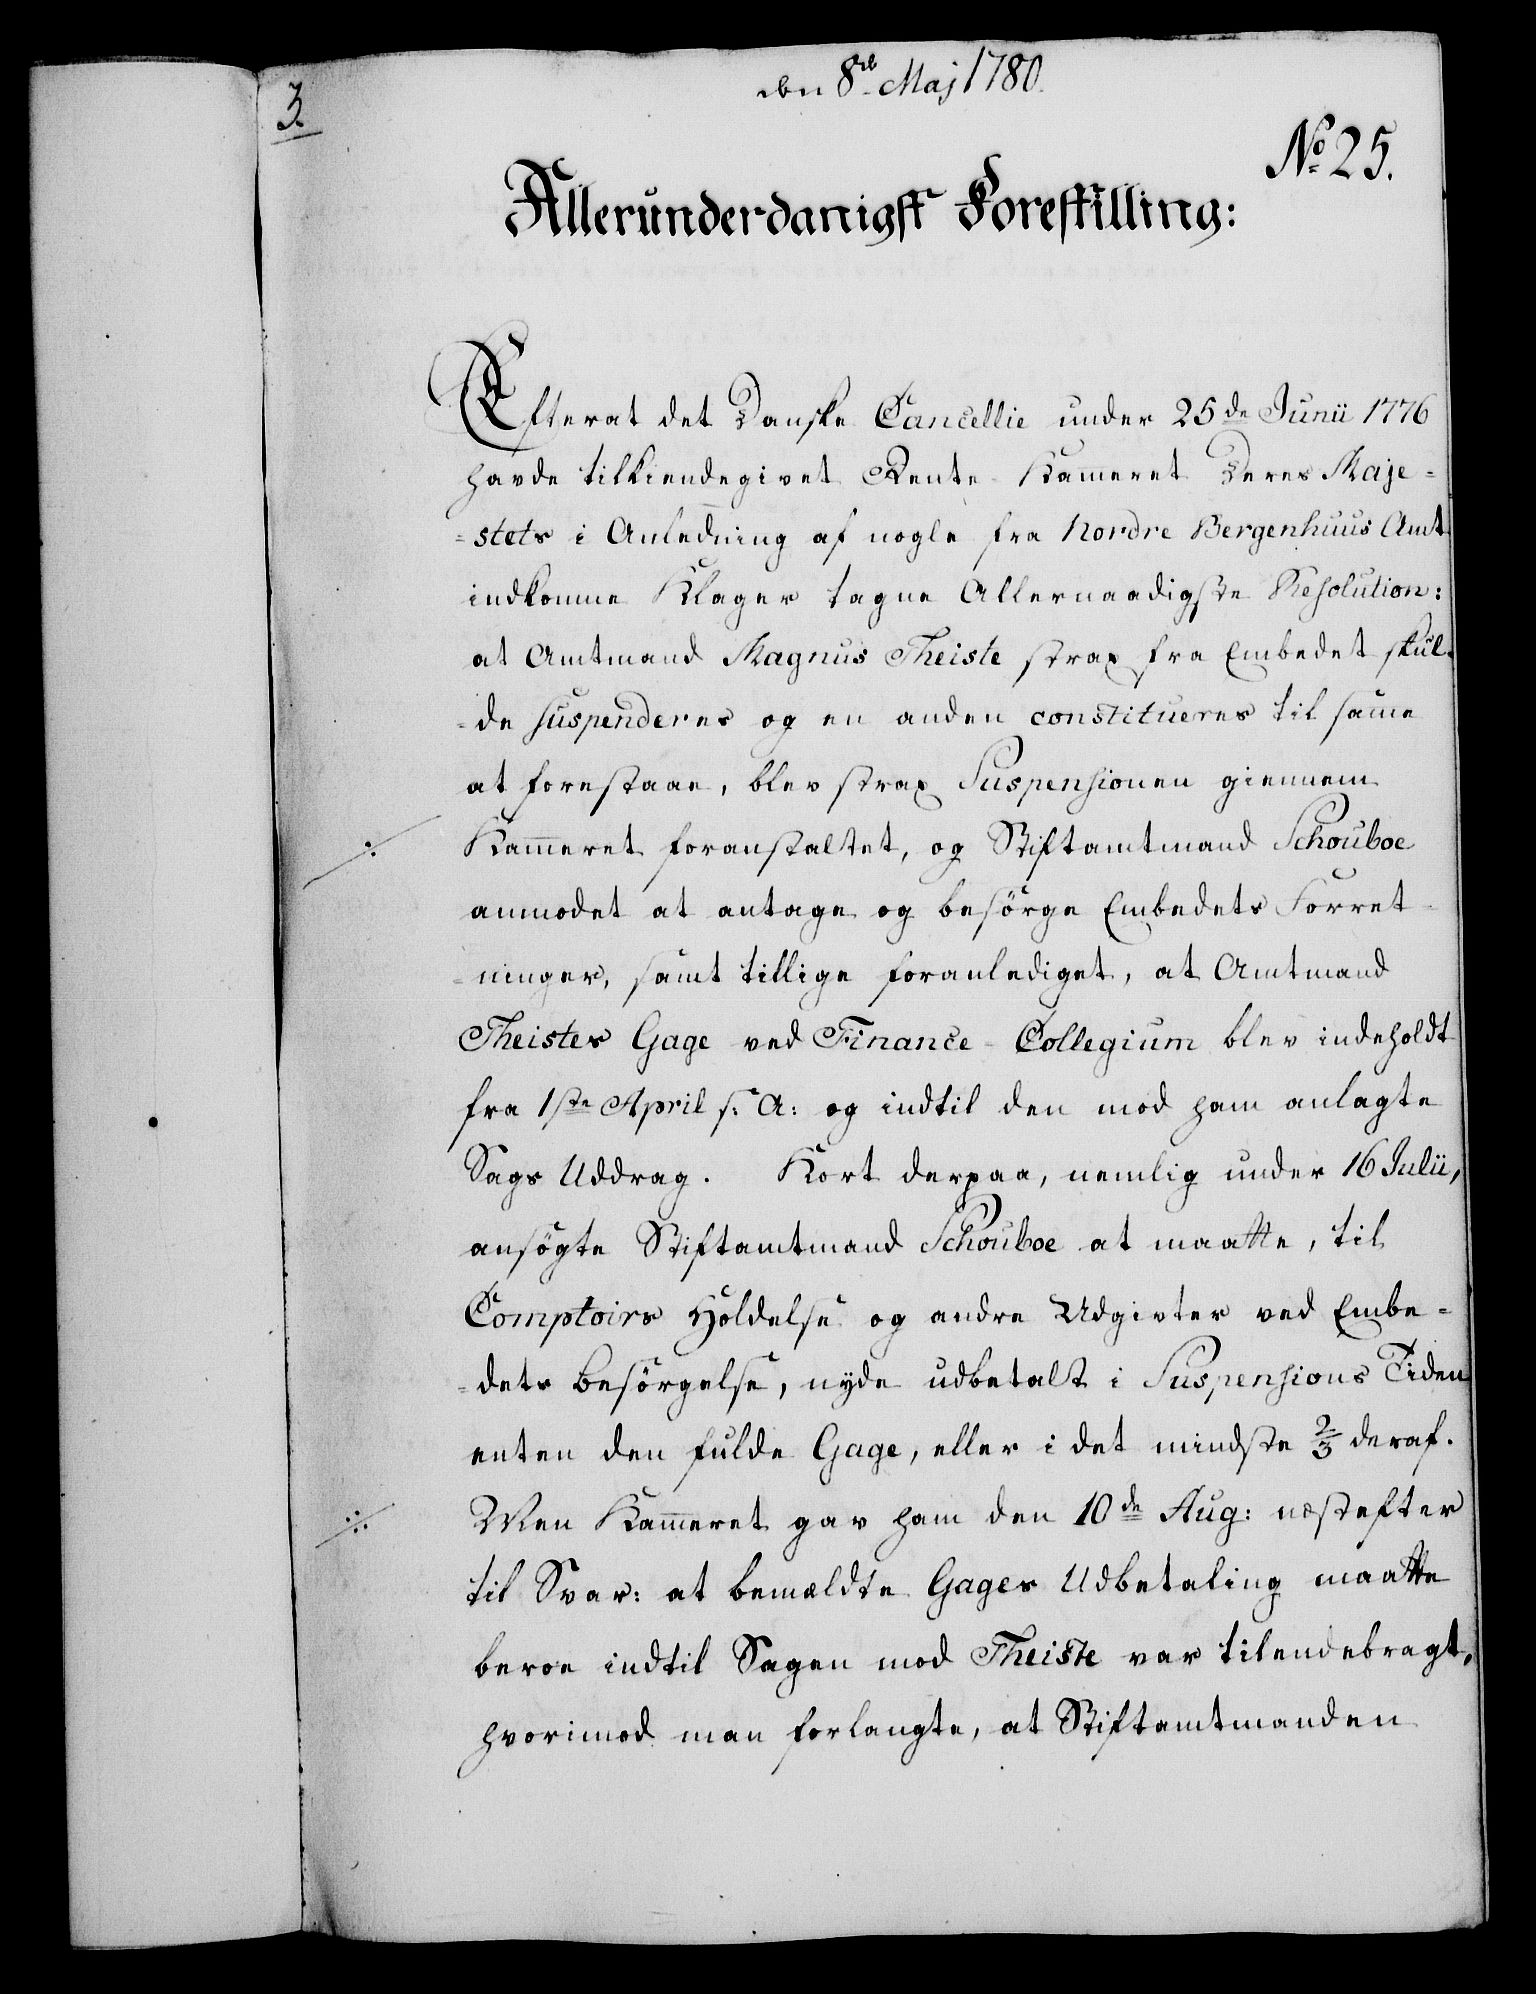 den 8de Maj 1780.
3.
No 25.
Allerunderdanigst Forestilling:
Efterat det Danske Cancellie under 25de Junii 1776
havde tilkiendegivet Rente-Kam̅eret Deres Maje-
-stets i Anledning af nogle fra Nordre Bergenhuus Amt
indkomne Klager tagne Allernaadigste Resolution:
at Amtmand Magnus Theiste strax fra Embedet skul-
-de suspenderes og en anden constitueres til sam̅e
at forestaae, blev strax Suspensionen giennem
Kam̅eret foranstaltet, og Stiftamtmand Schouboe
anmodet at antage og besörge Embedets Forret-
-ninger, samt tillige foranlediget, at Amtmand
Theistes Gage ved Finance-Collegium blev indeholdt
fra 1ste April s: A: og indtil den mod ham anlagte
Sags Uddrag. Kort derpaa, nemlig under 16 Julii,
ansögte Stiftamtmand Schouboe at maatte, til
Comptoirs Holdelse og andre Udgivter ved Embe-
-dets Besörgelse, nyde udbetalt i Suspensions Tiden
enten den fulde Gage, eller i det mindste 2/3 deraf.
Men Kam̅eret gav ham den 10de Aug: næstefter
til Svar: at bemældte Gages Udbetaling maatte
beroe indtil Sagen mod Theiste var tilendebragt,
hvorimod man forlangte, at Stiftamtmanden